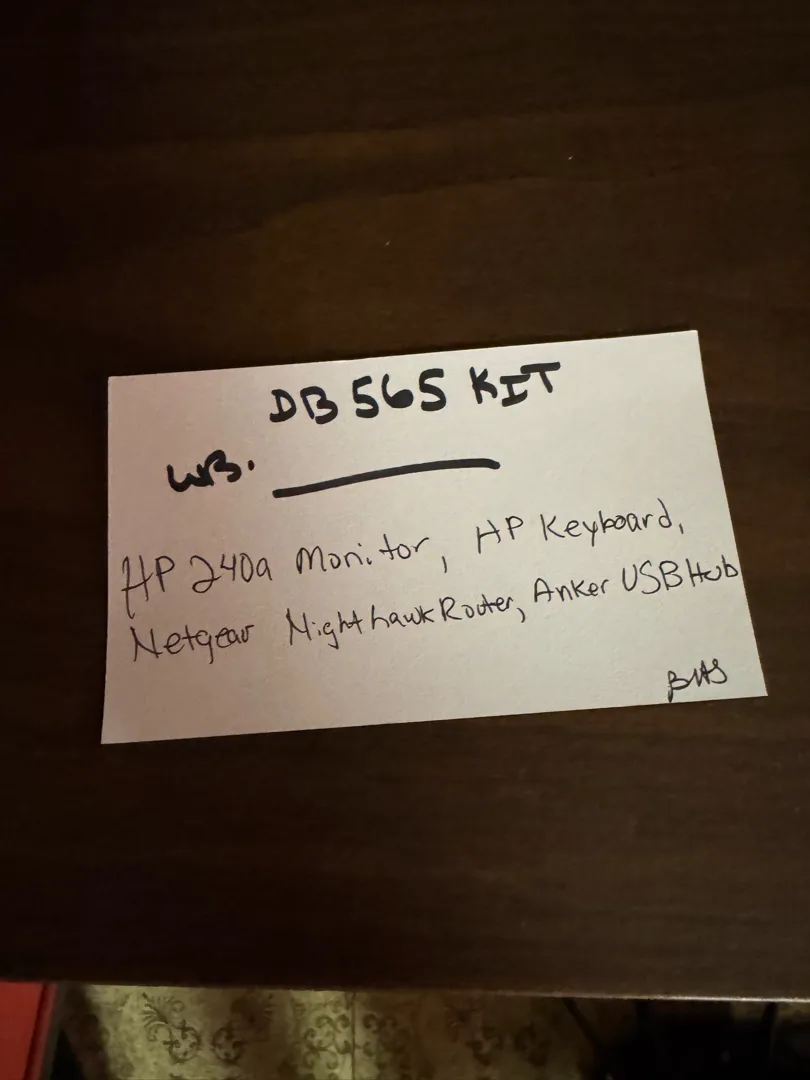 DB 565 KIT
WB.
HP 240a Monitor, HP Keyboard,
Netgear Nighthawk Router, Anker USB Hub